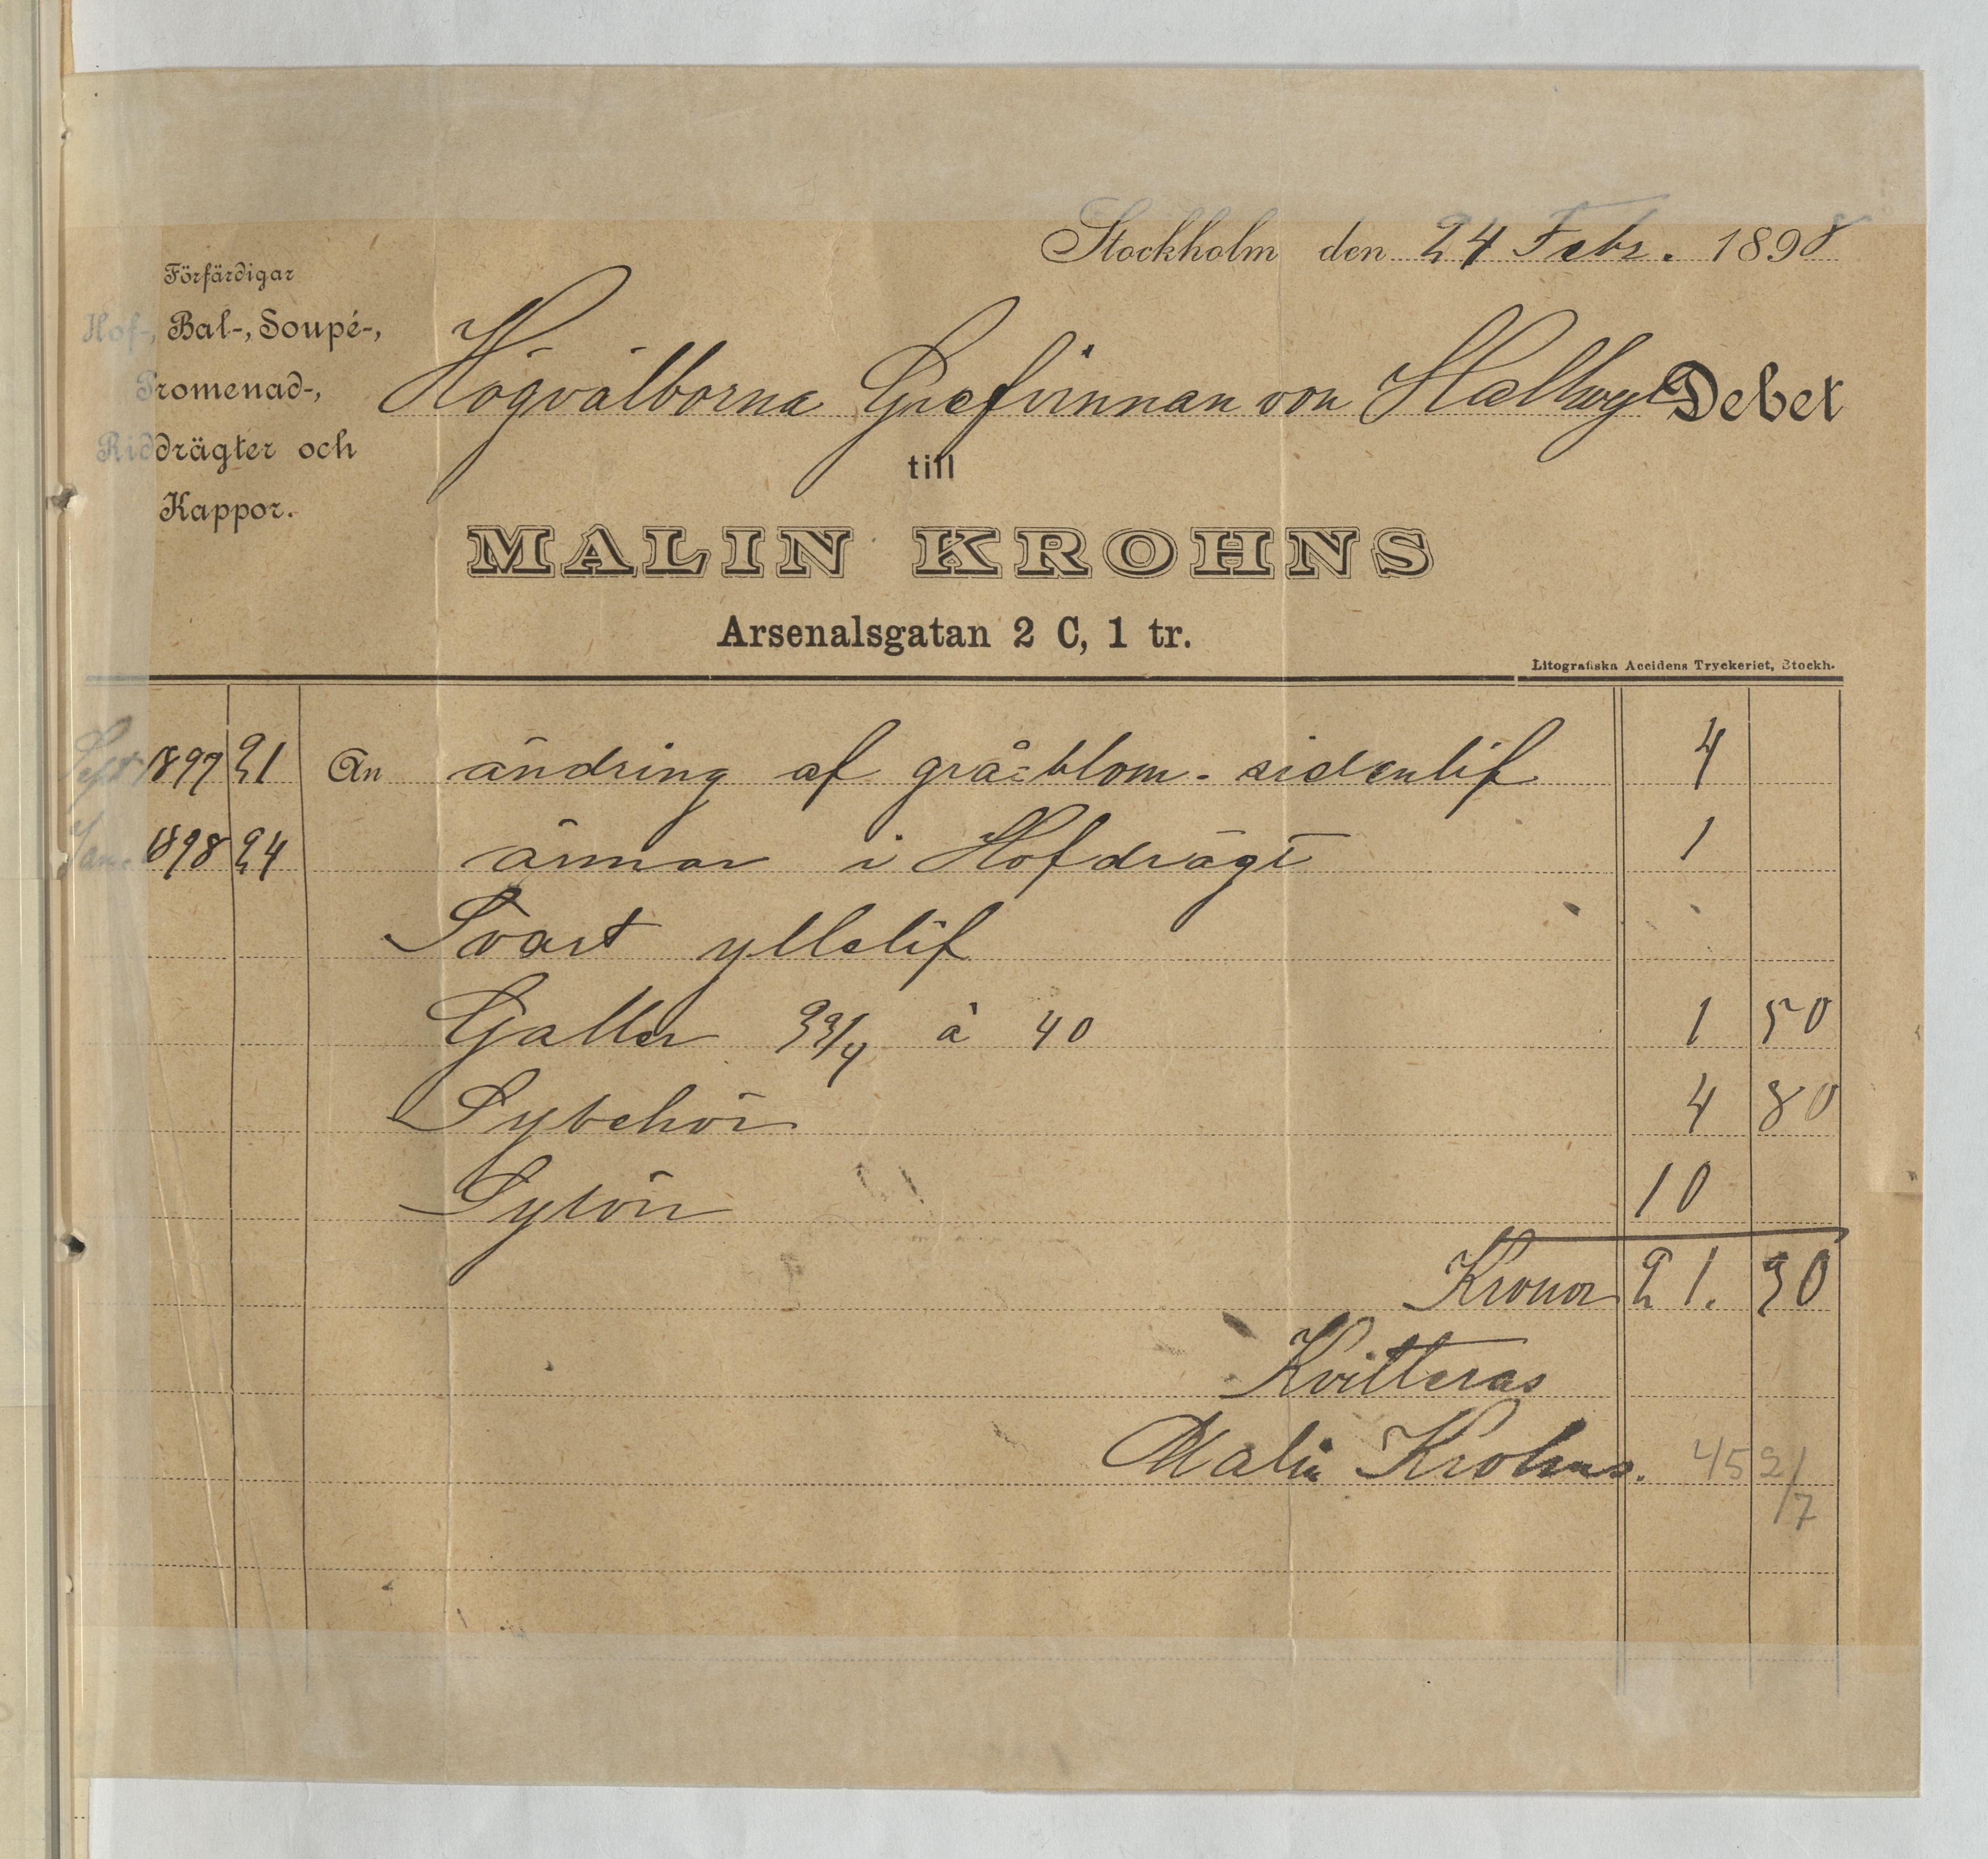 Stockholm den 24 Febr. 1898
Förfärdigar
Hof-, Bal-, Soupé-,
Promenad-,
Riddrägter och
Kappor.
Högvälborna Grefvinnan von Hallwyl Debet
till
MALIN KROHNS
Arsenalsgatan 2 C, 1 tr.
Litografiska Accidens Tryckeriet, Stockh.
Sept 1897 21 An ändring af grå-blom. sidenlif 4
Jan. 1898 24 ärmar i Hofdrägt 1
Svart yllelif
Galler 3 3/4 à 40 1 50
Sybehör 4 80
Sylön 10
Kronor 21. 30
Kvitteras
Malin Krohns. 45 2/7